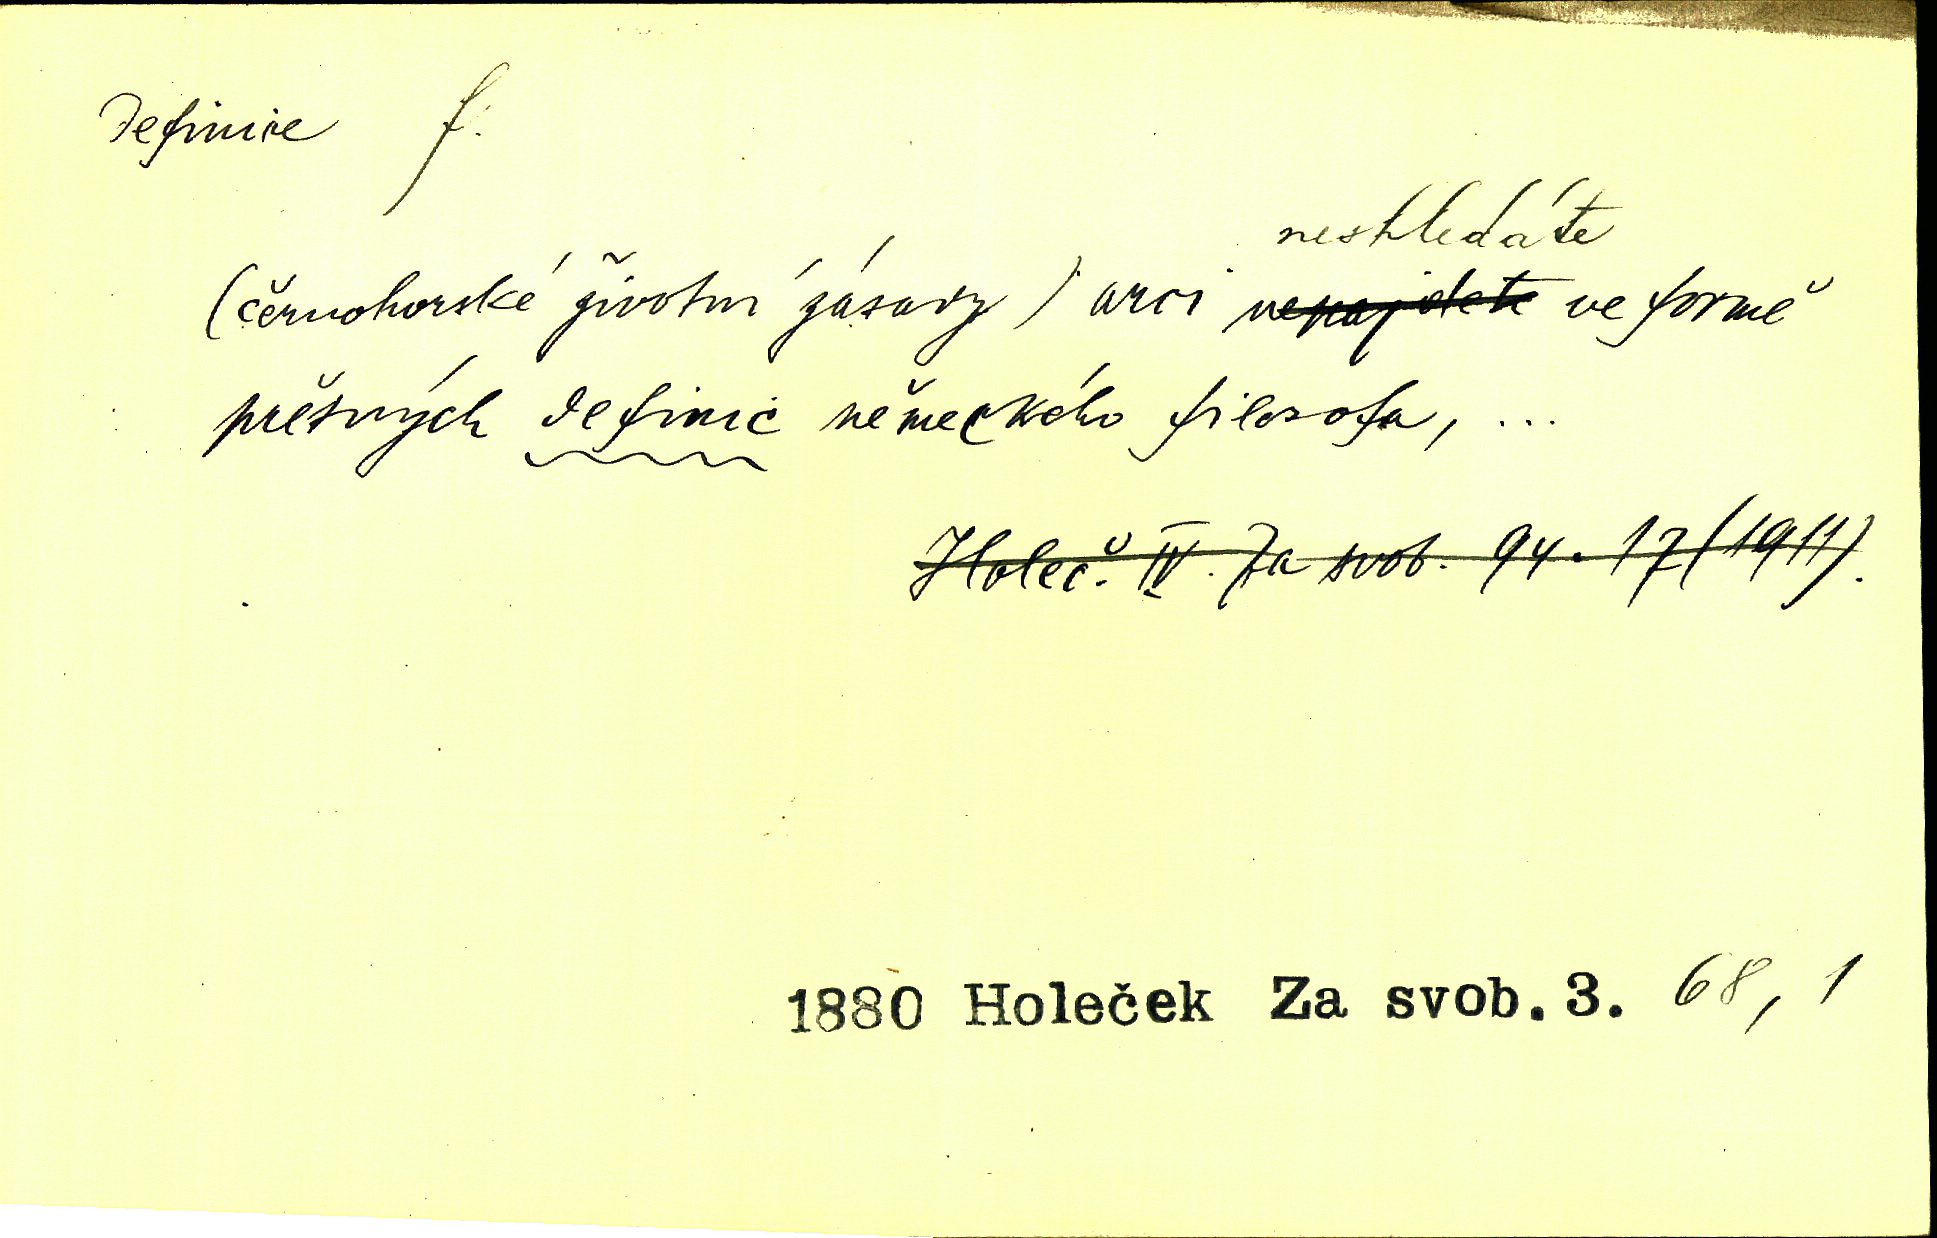 definice f.
neshledáte
(černohorské životní zásady) arci nenajdete ve formě
přesných definic německého filosofa, ...
Holeč. IV. Za svob. 94. 17 (1911).
1880 Holeček Za svob. 3. 68, 1